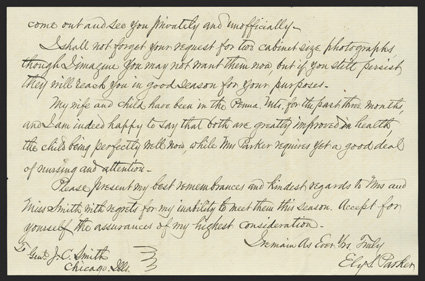 come out and see you privately and unofficially—
I shall not forget your request for two cabinet size photographs
though I imagine you may not want them now, but if you still persist
they will reach you in good season for your purposes.—
My wife and child have been in the Penna. Mts. for the past three months
and I am indeed happy to say that both are greatly improved in health
the child being perfectly well now, while Mrs Parker requires yet a good deal
of nursing and attention—
Please present my best remembrances and kindest regards to Mrs and
Miss Smith with regrets for my inability to meet them this season. Accept for
yourself the assurances of my highest consideration.
I remain As Ever Yrs. Truly
Ely S. Parker
To Genl. J. C. Smith
Chicago. Ills.